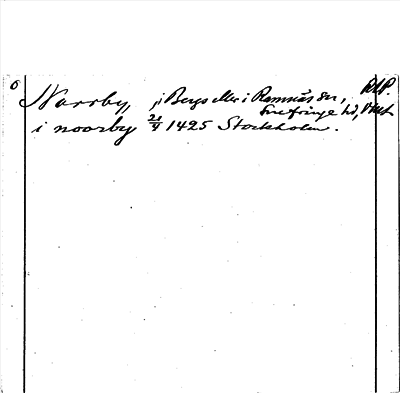 Norrby, i Bergs eller i Ramnäs sn, RAP.
Snefringe hd, Vstm
i noorby 21/4 1425 Stockholm.